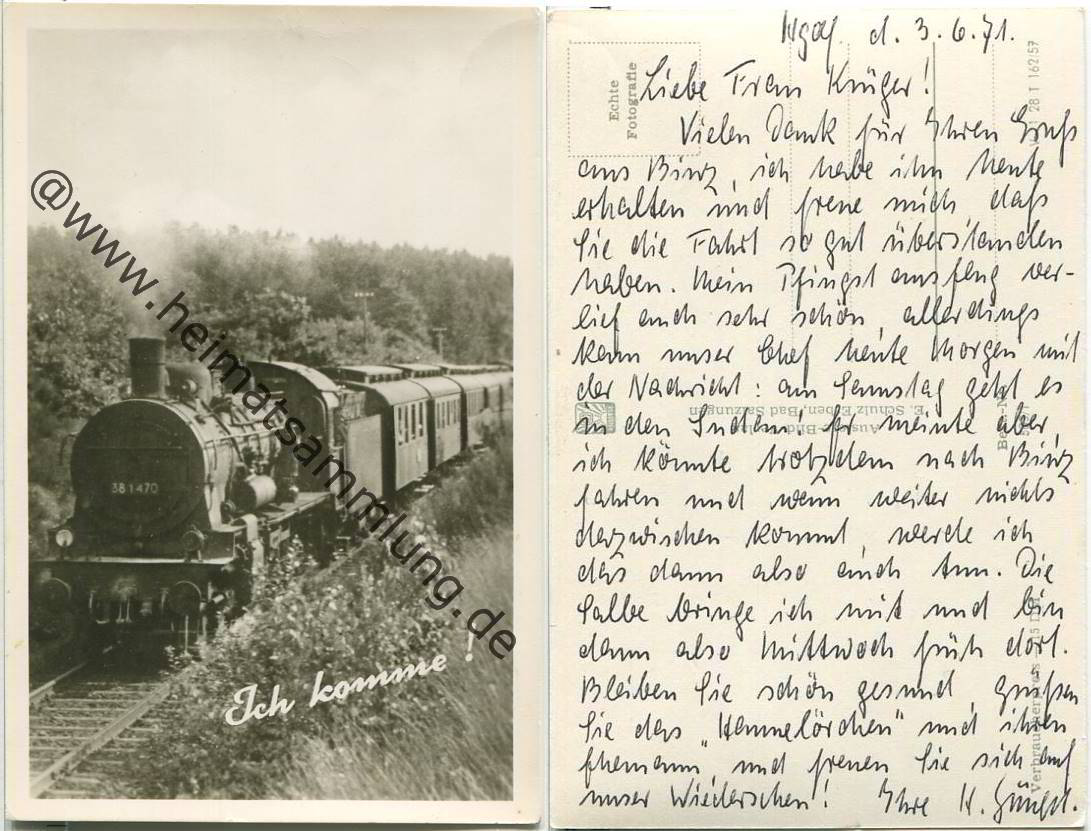 @www.heimatsammlung.de
38 1470
Ich komme !
d. 3.6.71.
Echte
Fotografie
Liebe Frau Krüger!
Vielen Dank für Ihren Gruß
aus Binz, ich habe ihn heute
erhalten und freue mich, daß
Sie die Fahrt so gut überstanden
haben. Mein Pfingstausflug ver-
lief auch sehr schön, allerdings
kam unser Chef heute Morgen mit
der Nachricht: am Samstag geht es
in den Süden! Er meinte aber,
ich könnte trotzdem nach Binz
fahren und wenn weiter nichts
dazwischen kommt, werde ich
das dann also auch tun. Die
Salbe bringe ich mit und bin
dann also Mittwoch früh dort.
Bleiben Sie schön gesund, grüßen
Sie das „Hannelörchen" und ihren
Ehemann, und freuen Sie sich auf
unser Wiedersehen! Ihre H.
E. Schulz Erben, Bad Salzungen
28 1 162/57